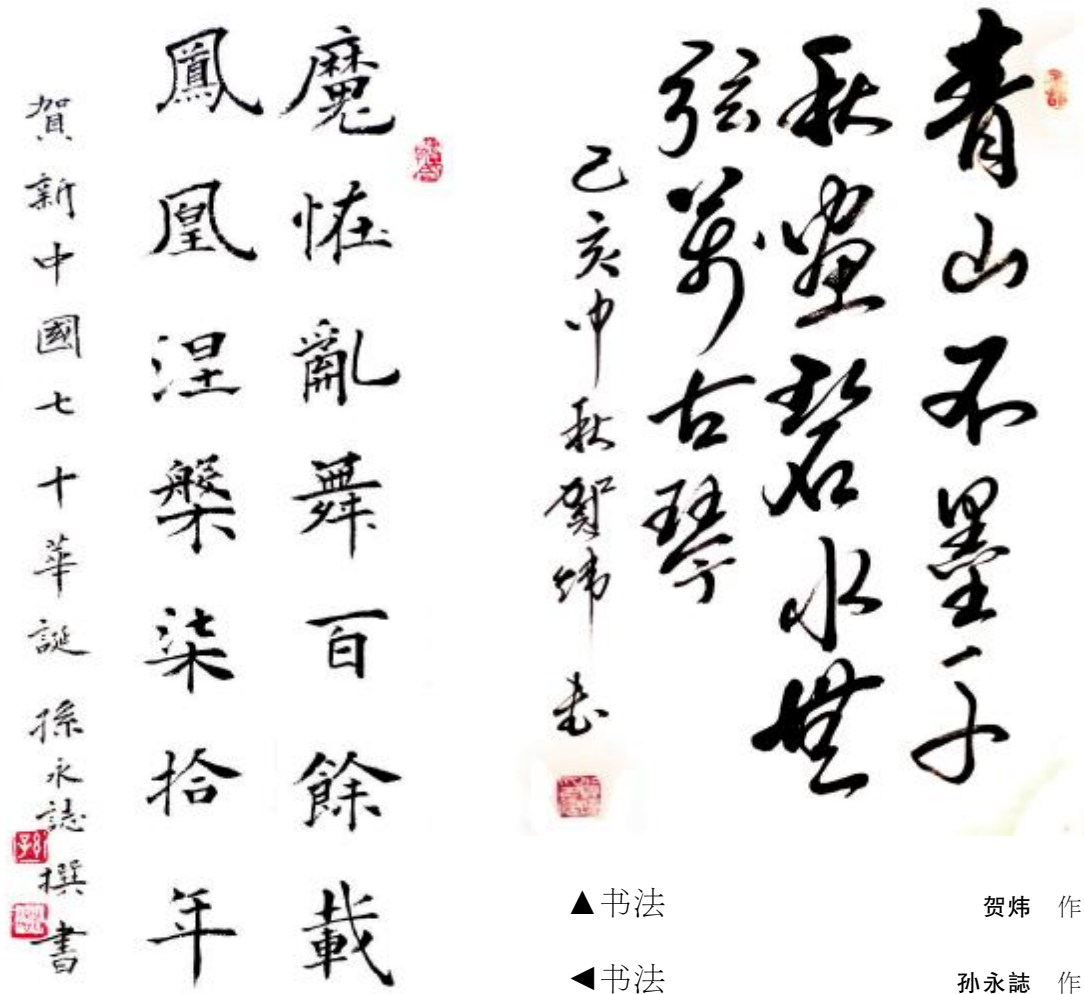 青山不墨千
秋画碧水無
弦万古琴
己亥中秋贺炜书
魔怪亂舞百餘載
鳳凰涅槃柒拾年
賀新中國七十華誕 孫永誌撰書
▲书法 贺炜 作
◀书法 孙永誌 作